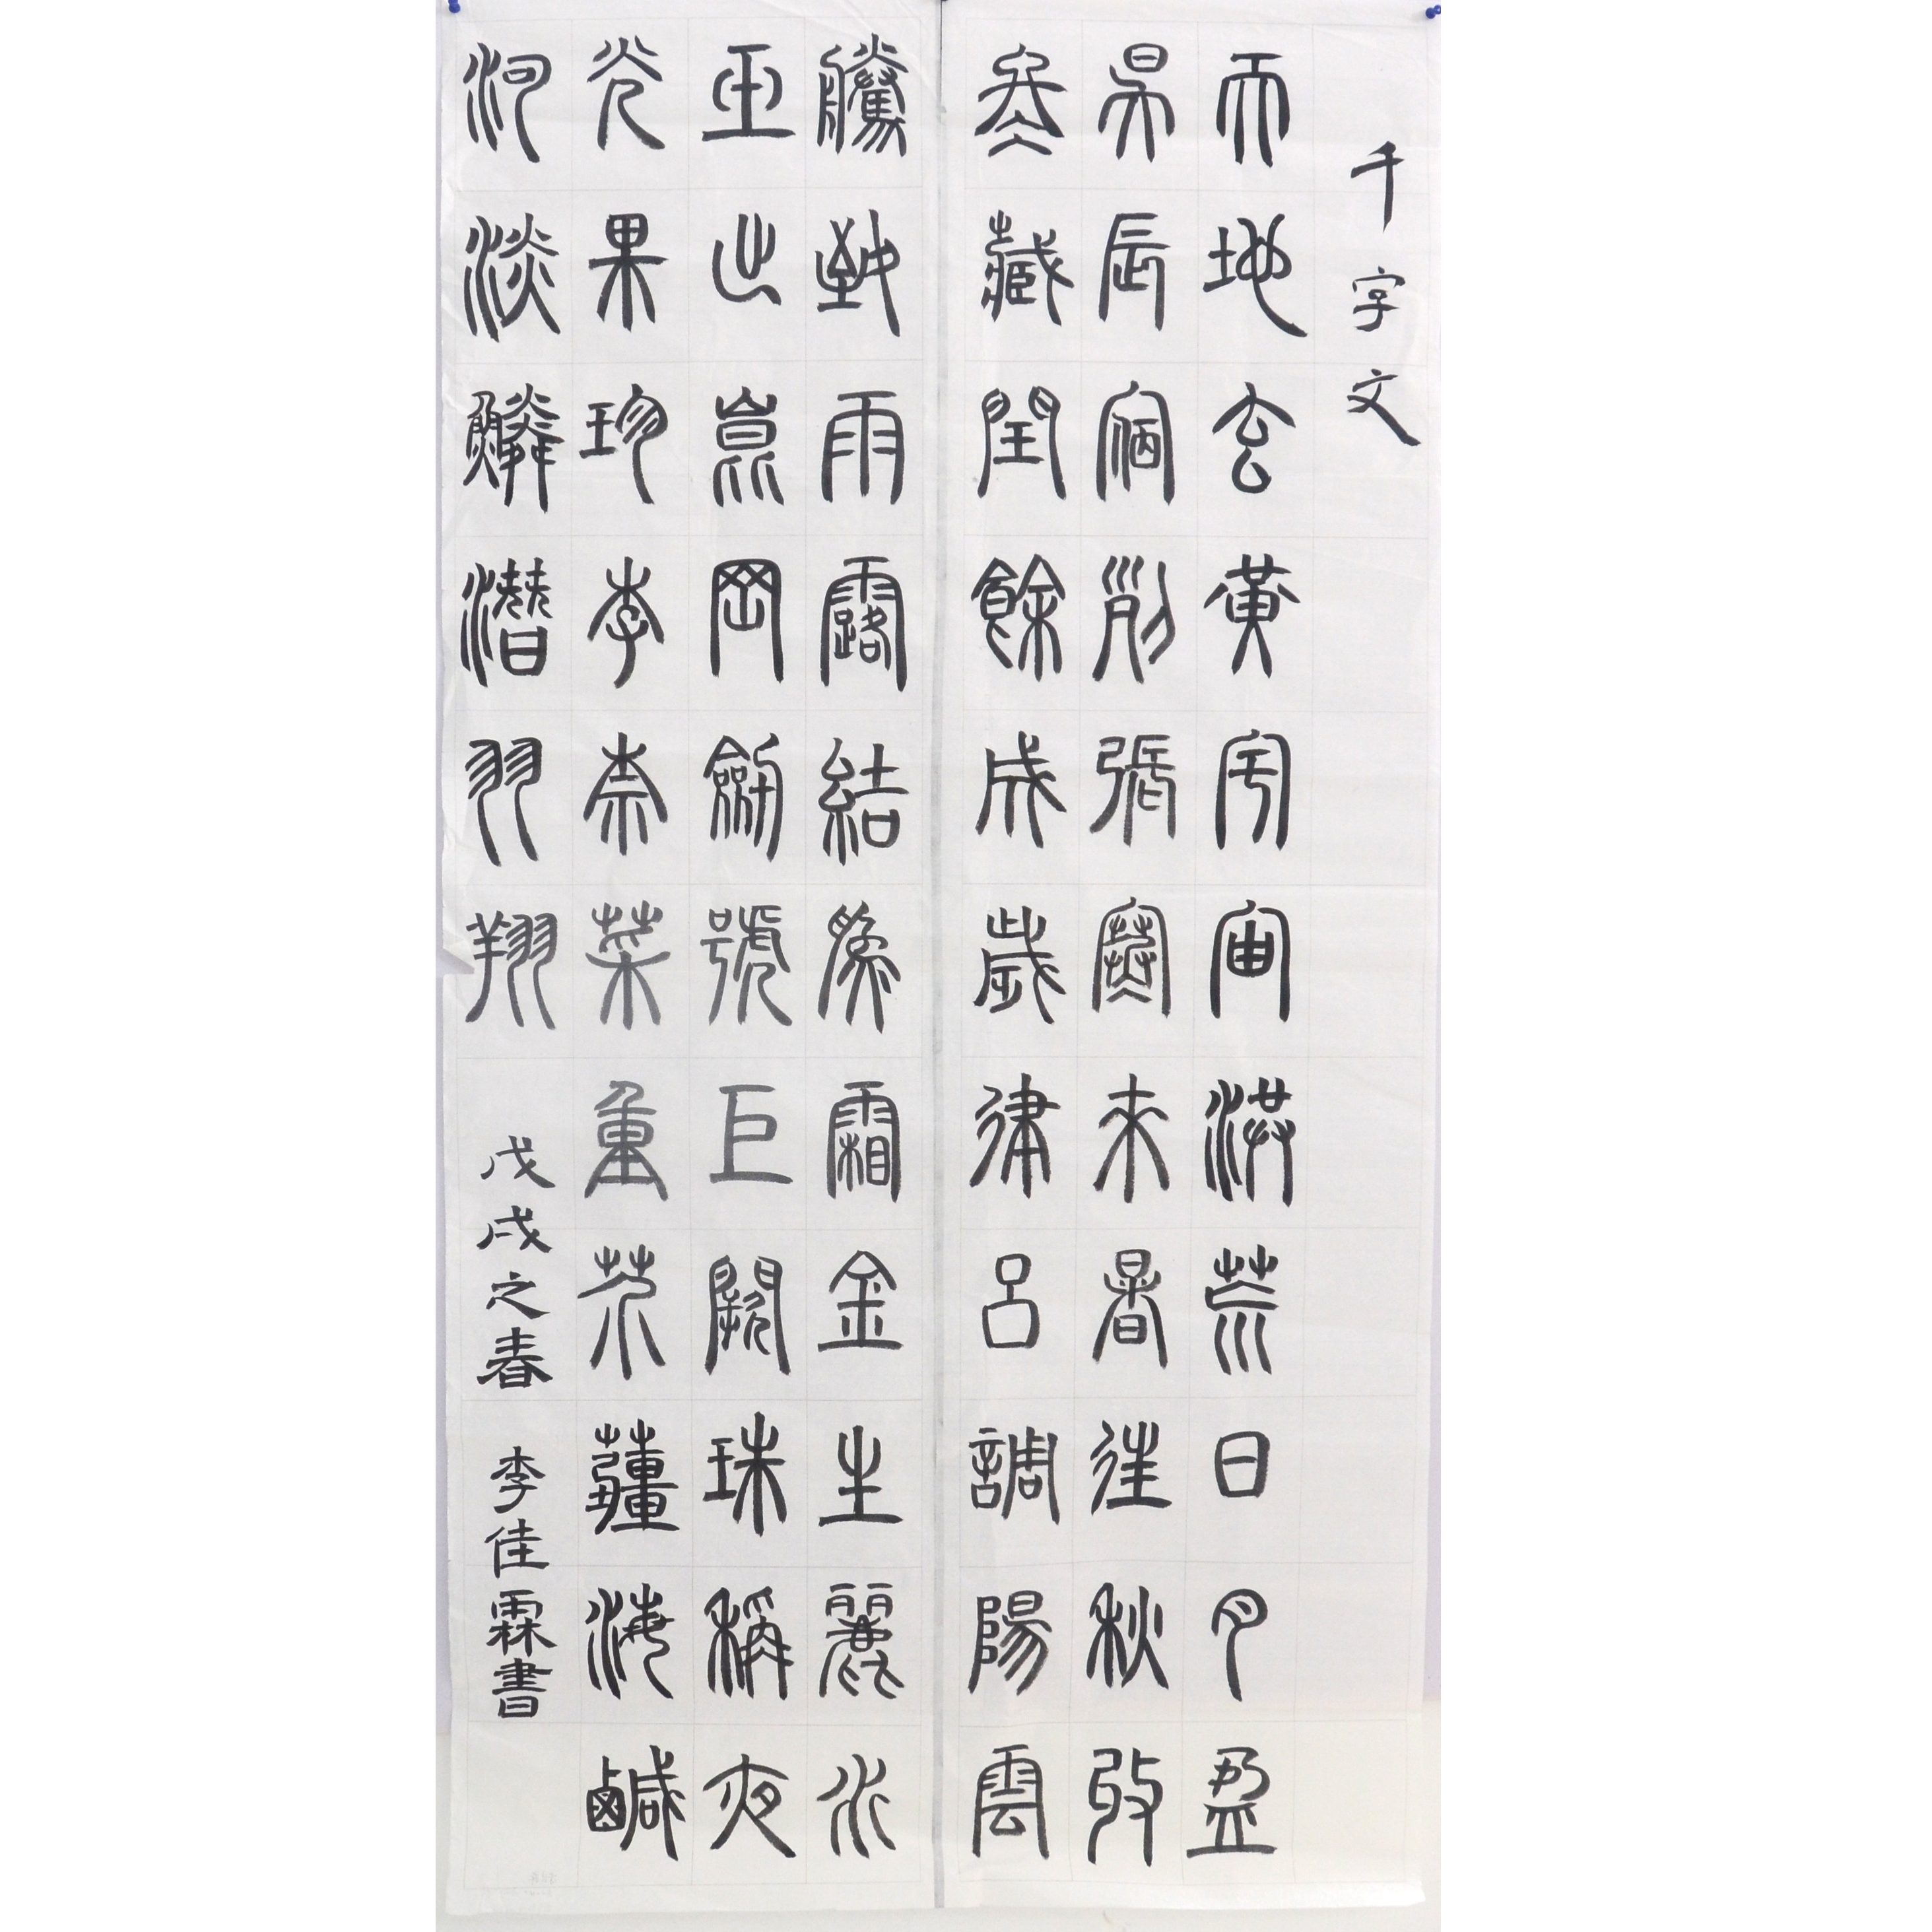 千字文
天地玄黃宇宙洪荒日月盈
昃辰宿列張寒來暑往秋收
冬藏閏餘成歲律呂調陽雲
騰致雨露結為霜金生麗水
玉出崑岡劍號巨闕珠稱夜
光果珍李柰菜重芥薑海鹹
河淡鱗潛羽翔
戊戌之春 李佳霖書